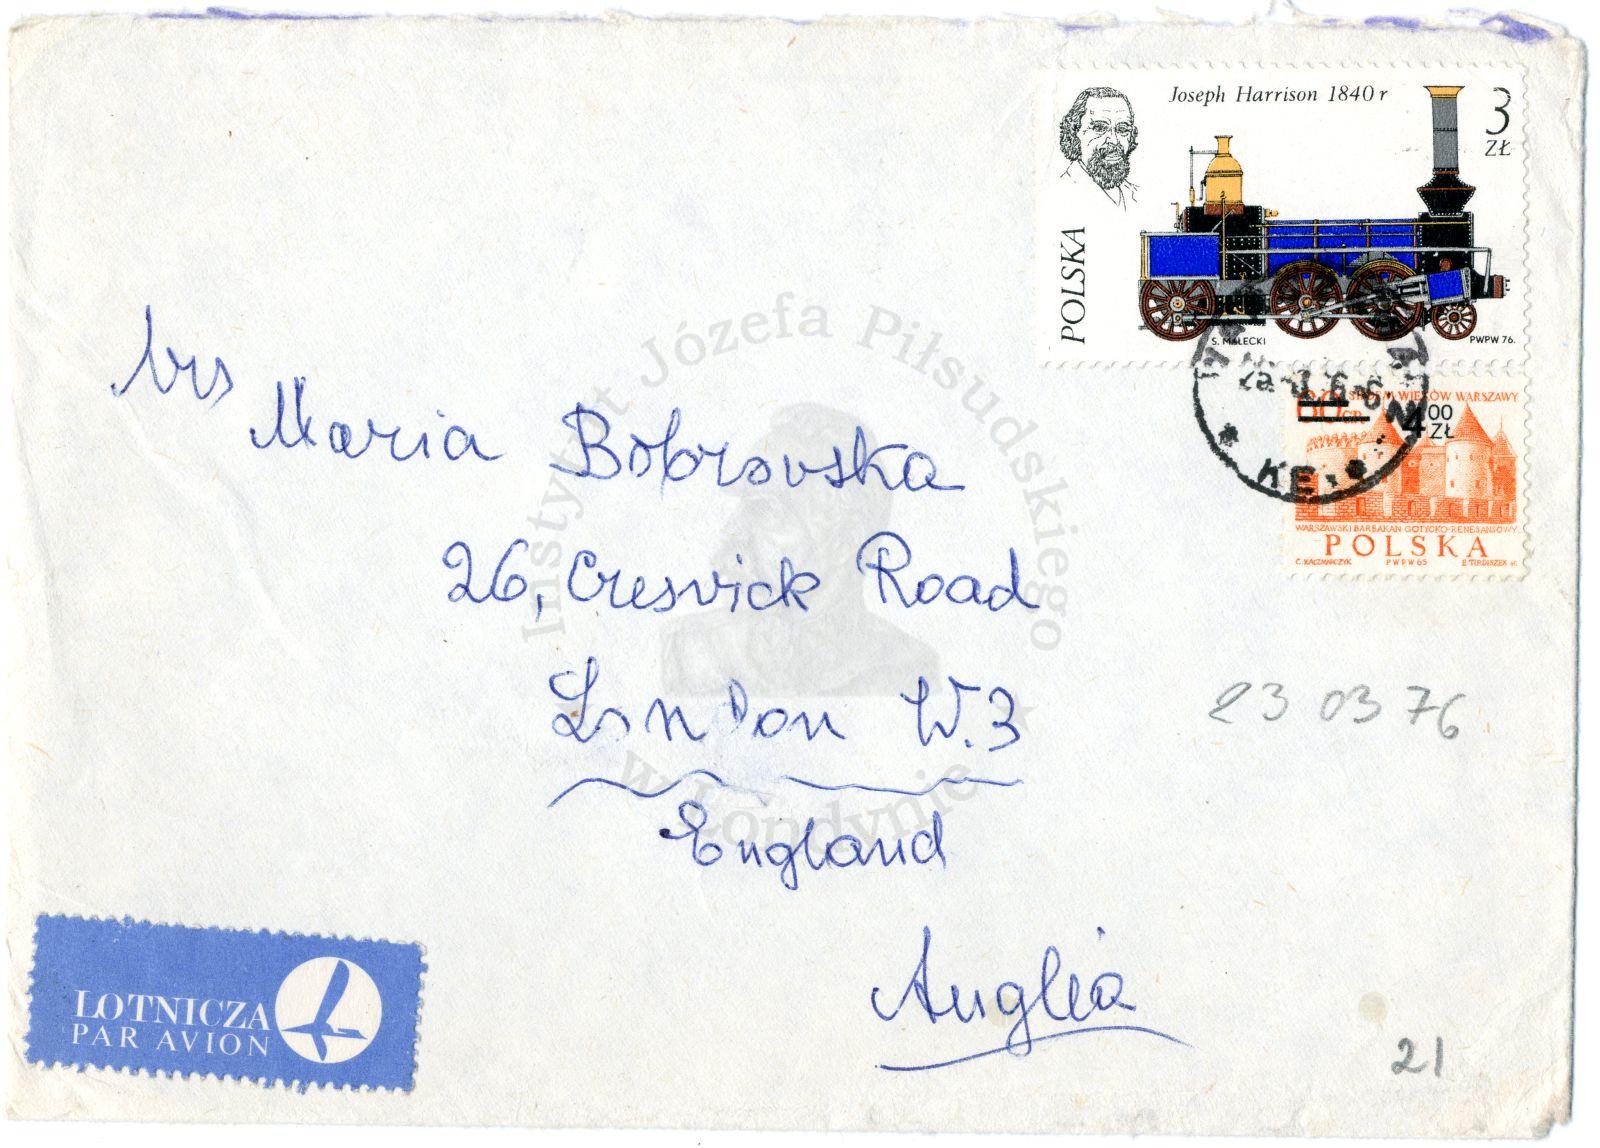 Joseph Harrison 1840 r
3
ZŁ
POLSKA
S. MAŁECKI
PWPW 76.
60 GR
SIEDEM WIEKÓW WARSZAWY
4 00
ZŁ
WARSZAWSKI BARBAKAN GOTYCKO-RENESANSOWY
POLSKA
C. KACZMARCZYK PWPW 65 E. TIRDISZEK sc.
Instytut Józefa Piłsudskiego
w Londynie
Mrs
Maria Bobrowska
26, Creswick Road
London W.3
England
Anglia
23 03 76
21
LOTNICZA
PAR AVION